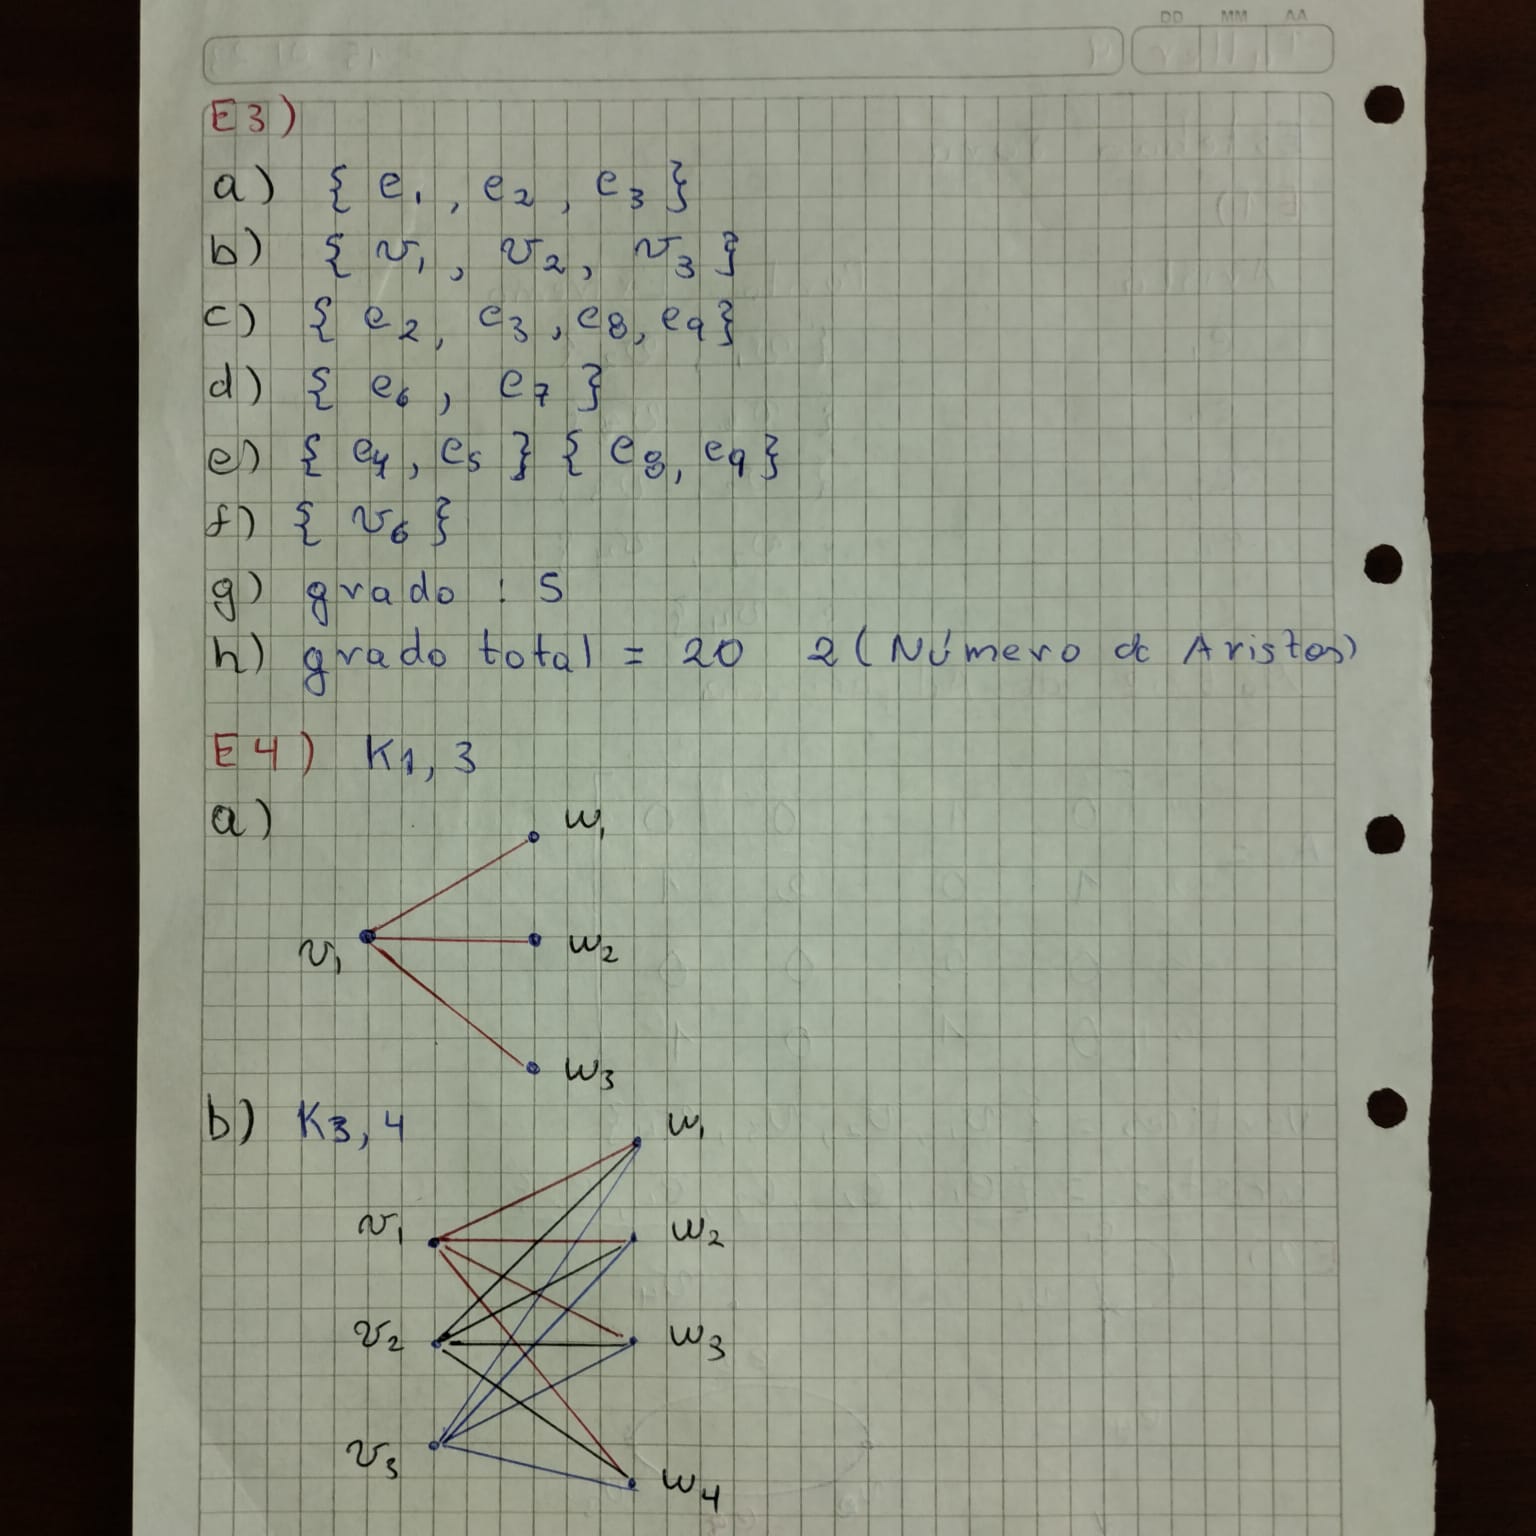 DD MM AA
E3)
a) { e1, e2, e3 }
b) { v1, v2, v3 }
c) { e2, e3, e8, e9}
d) { e6, e7 }
e) { e4, e5 } { e8, e9}
f) { v6 }
g) grado : 5
h) grado total = 20 2 (Número de Aristas)
E4) K1,3
a)
w1
v1
w2
w3
b) K3,4
w1
v1
w2
v2
w3
v3
w4